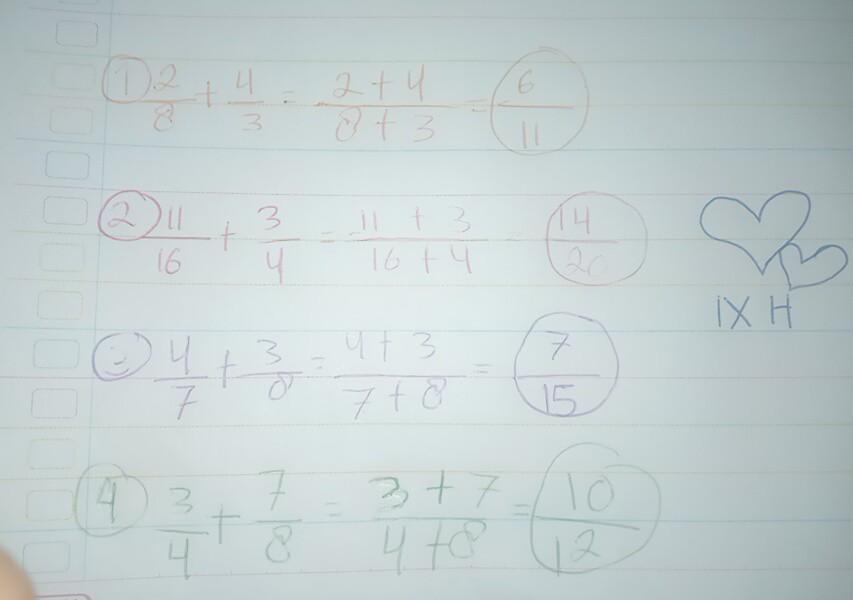 ① 2/8 + 4/3 = 2 + 4/8 + 3 = 6/11
② 11/16 + 3/4 = 11 + 3/16 + 4 = 14/20
4/7 + 3/8 = 4 + 3/7 + 8 = 7/15
④ 3/4 + 7/8 = 3 + 7/4 + 8 = 10/12
IX H